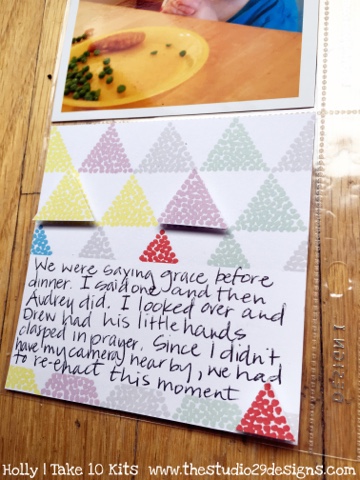 We were saying grace before
dinner. I said one and then
Audrey did. I looked over and
Drew had his little hands
clasped in prayer. Since I didn't
have my camera nearby, we had
to re-enact this moment
Holly | Take 10 Kits www.thestudio29designs.com